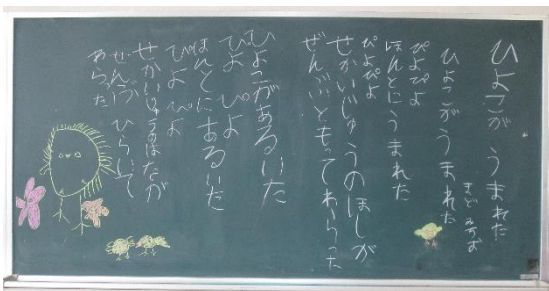 ひよこが うまれた
きど のりこ
ひよこが うまれた
ぴよぴよ
ほんとに うまれた
ぴよぴよ
せかいじゅうのほしが
ぜんぶ ともって わらった
ひよこが あるいた
ぴよ ぴよ
ほんとに あるいた
ぴよ ぴよ
せかいじゅうのはなが
ぜんぶ ひらいて
わらった